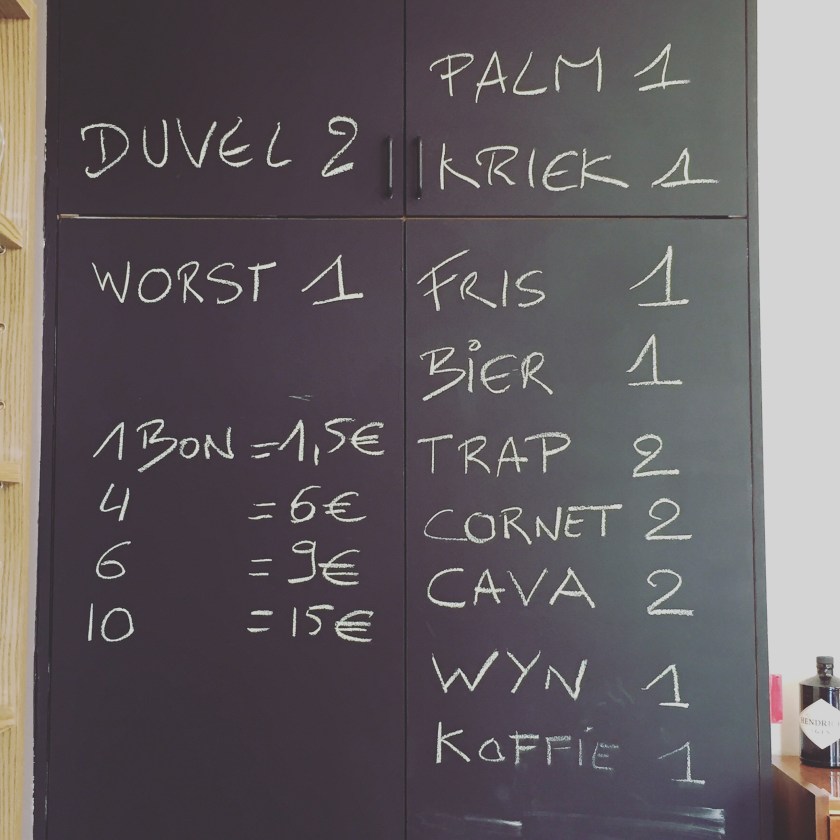 DUVEL 2
WORST 1
1 BON = 1,5€
4 = 6€
6 = 9€
10 = 15€
PALM 1
KRIEK 1
FRIS 1
BIER 1
TRAP 2
CORNET 2
CAVA 2
WYN 1
KOFFIE 1
GIN